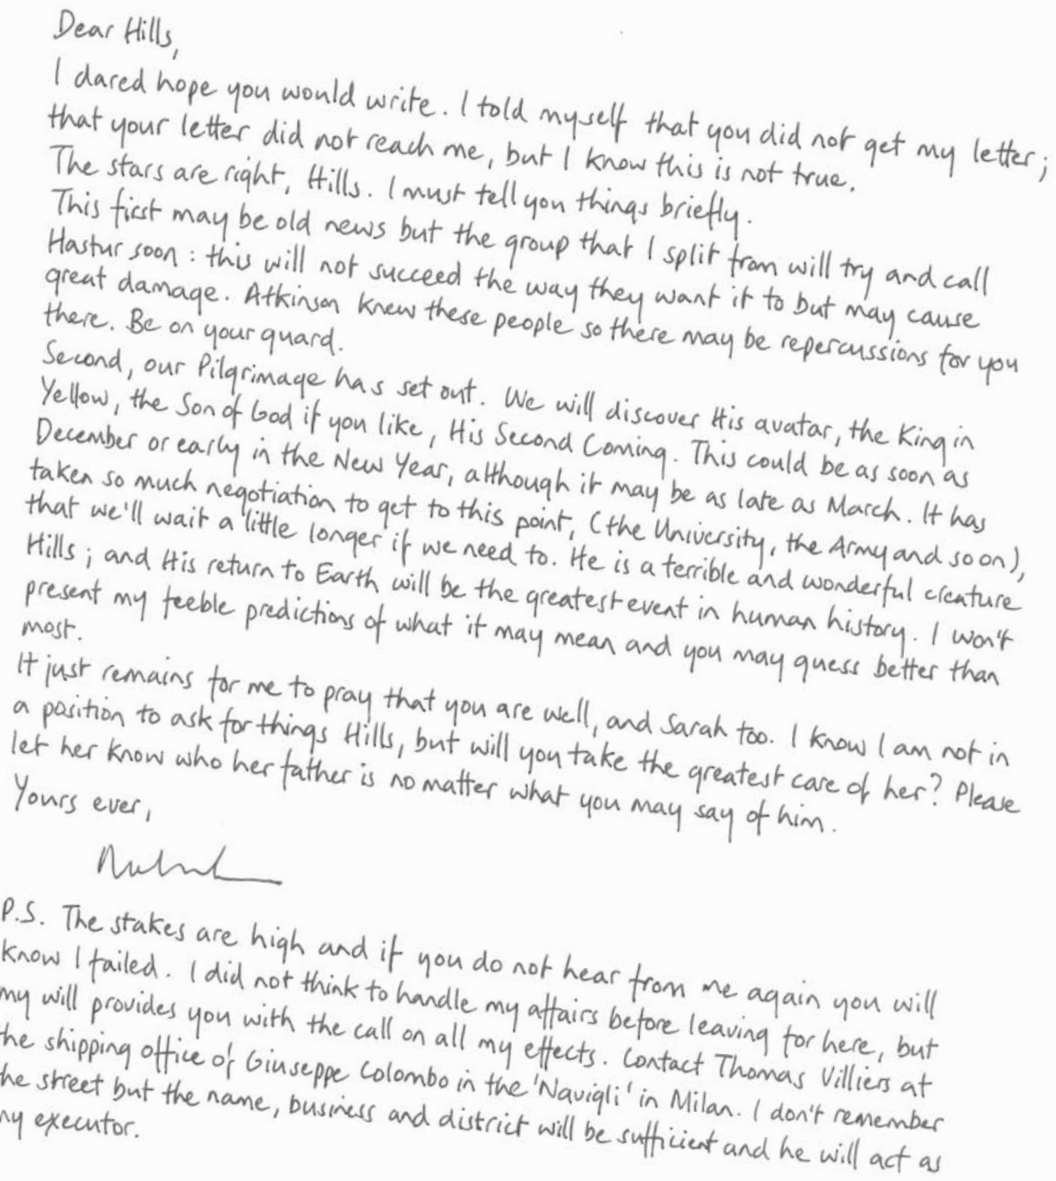 Dear Hills,
I dared hope you would write. I told myself that you did not get my letter;
that your letter did not reach me, but I know this is not true.
The stars are right, Hills. I must tell you things briefly.
This first may be old news but the group that I split from will try and call
Hastur soon: this will not succeed the way they want it to but may cause
great damage. Atkinson knew these people so there may be repercussions for you
there. Be on your guard.
Second, our Pilgrimage has set out. We will discover His avatar, the King in
Yellow, the Son of God if you like, His Second Coming. This could be as soon as
December or early in the New Year, although it may be as late as March. It has
taken so much negotiation to get to this point, (the University, the Army and so on),
that we'll wait a little longer if we need to. He is a terrible and wonderful creature
Hills; and His return to Earth will be the greatest event in human history. I won't
present my feeble predictions of what it may mean and you may guess better than
most.
It just remains for me to pray that you are well, and Sarah too. I know I am not in
a position to ask for things Hills, but will you take the greatest care of her? Please
let her know who her father is no matter what you may say of him.
Yours ever,
P.S. The stakes are high and if you do not hear from me again you will
know I failed. I did not think to handle my affairs before leaving for here, but
my will provides you with the call on all my effects. Contact Thomas Villiers at
the shipping office of Giuseppe Colombo in the 'Navigli' in Milan. I don't remember
he street but the name, business and district will be sufficient and he will act as
my executor.